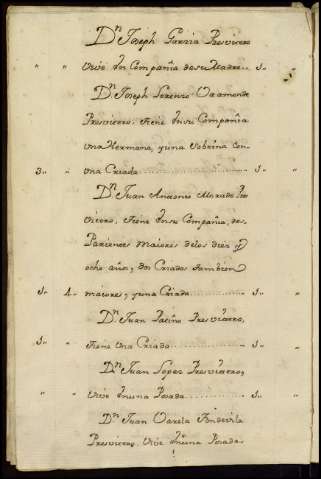 Dn. Joseph Garzia Presvitero
" " Vive En Compañia de su Madre.. S..
Dn. Joseph Lorenzo Vaamonde
Presvitero. tiene En su Compañia
una Hermana, y una Sobrina con
3.. " una Criada ........ S.. "
Dn. Juan Antonio Pre
vitero, tiene En su Compañia, dos
Parientes maiores de los diez y
ocho años, y dos Criados tambien
S.. 4.. maiores, y una Criada ........ S.. "
Dn. Juan Patiño Presvitero,
S.. " tiene una Criada ........ S.. "
Dn. Juan Lopez Presvitero,
" " Vive En una Posada ........ S.. "
Dn. Juan Varela Fondevila
Presvitero, Vive En una Posada-